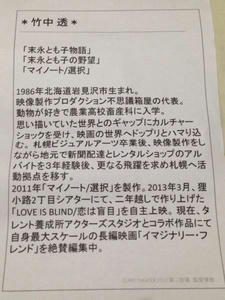 ＊竹中 透＊
「末永とも子物語」
「末永とも子の野望」
「マイノート/選択」
1986年北海道岩見沢市生まれ。
映像製作プロダクション不思議箱屋の代表。
動物が好きで農業高校畜産科に入学。
思い描いていた世界とのギャップにカルチャー
ショックを受け、映画の世界へドップリとハマり込
む。札幌ビジュアルアーツ卒業後、映像製作をし
ながら地元で新聞配達とレンタルショップのアル
バイトを3年経験後、更なる飛躍を求め札幌へ活
動拠点を移す。
2011年「マイノート/選択」を製作。2013年3月、狸
小路2丁目シアターにて、二年越しで作り上げた
「LOVE IS BLIND/恋は盲目」を自主上映。現在、タ
レント養成所アクターズスタジオとコラボ作品にて
自身最大スケールの長編映画「イマジナリー・フ
レンド」を絶賛編集中。